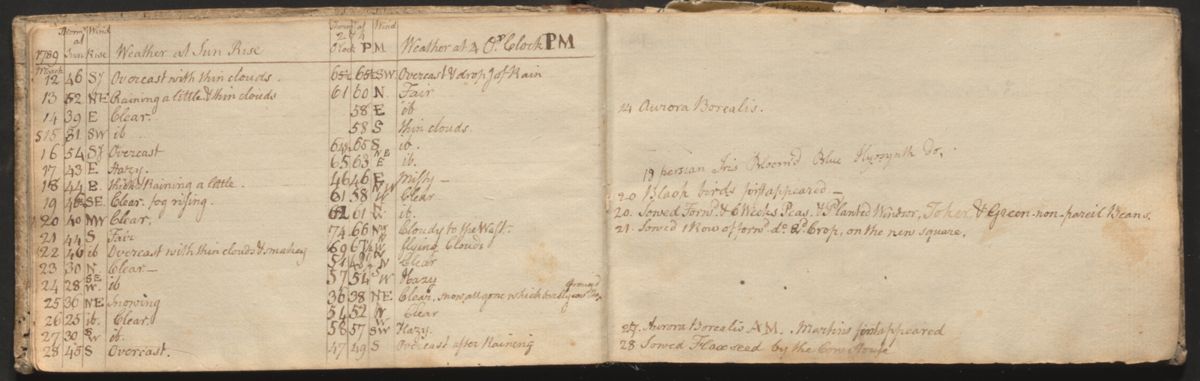 1789 Thermr at Sun Wind Rise Weather at Sun Rise Thermr at 2 & 4 Clock PM Wind Weather at 4 O'Clock PM
March
12 46 Overcast with thin clouds. 65 SW Overcast & drops of Rain
13 52 NE Raining a little & thin clouds 61 60 N. Fair
14 39 E Clear. 58 E it
15 31 SW it 58 S thin clouds.
16 54 Overcast 65 S it.
17 43 E Hazy. 65 63 NE it.
18 44 E thick & Raining a little. 46 46 E Misty —
19 SE Clear. fog rising. 61 58 W Clear
20 40 NW Clear. 62 61 N it.
21 44 S Fair 74 66 Cloudy to the West.
22 46 it Overcast with thin clouds & smokey 69 67 flying Clouds
23 30 N. Clear — 54 N Clear
24 28 SE W. it 57 54 SW Hazy
25 36 NE Snowing 36 38 NE Clear. snow all gone which
26 25 it. Clear. 54 52 W Clear
27 30 SW it. 58 57 SW Hazy.
28 45 S Overcast. 47 49 S Overcast after Raining
14 Aurora Borealis.
19 persian Iris Bloom'd Blue Hyacynth do.
20 Black birds just appeared —
20. Sowed Forwd & 6 Weeks Peas. & Planted Windsor, Toker & Green-non-pareil Beans.
21. Sowed 1 Row of forwd do 2d Crop, on the new square.
27. Aurora Borealis AM. Martins just appeared
28 Sowed Flax seed by the Cow House